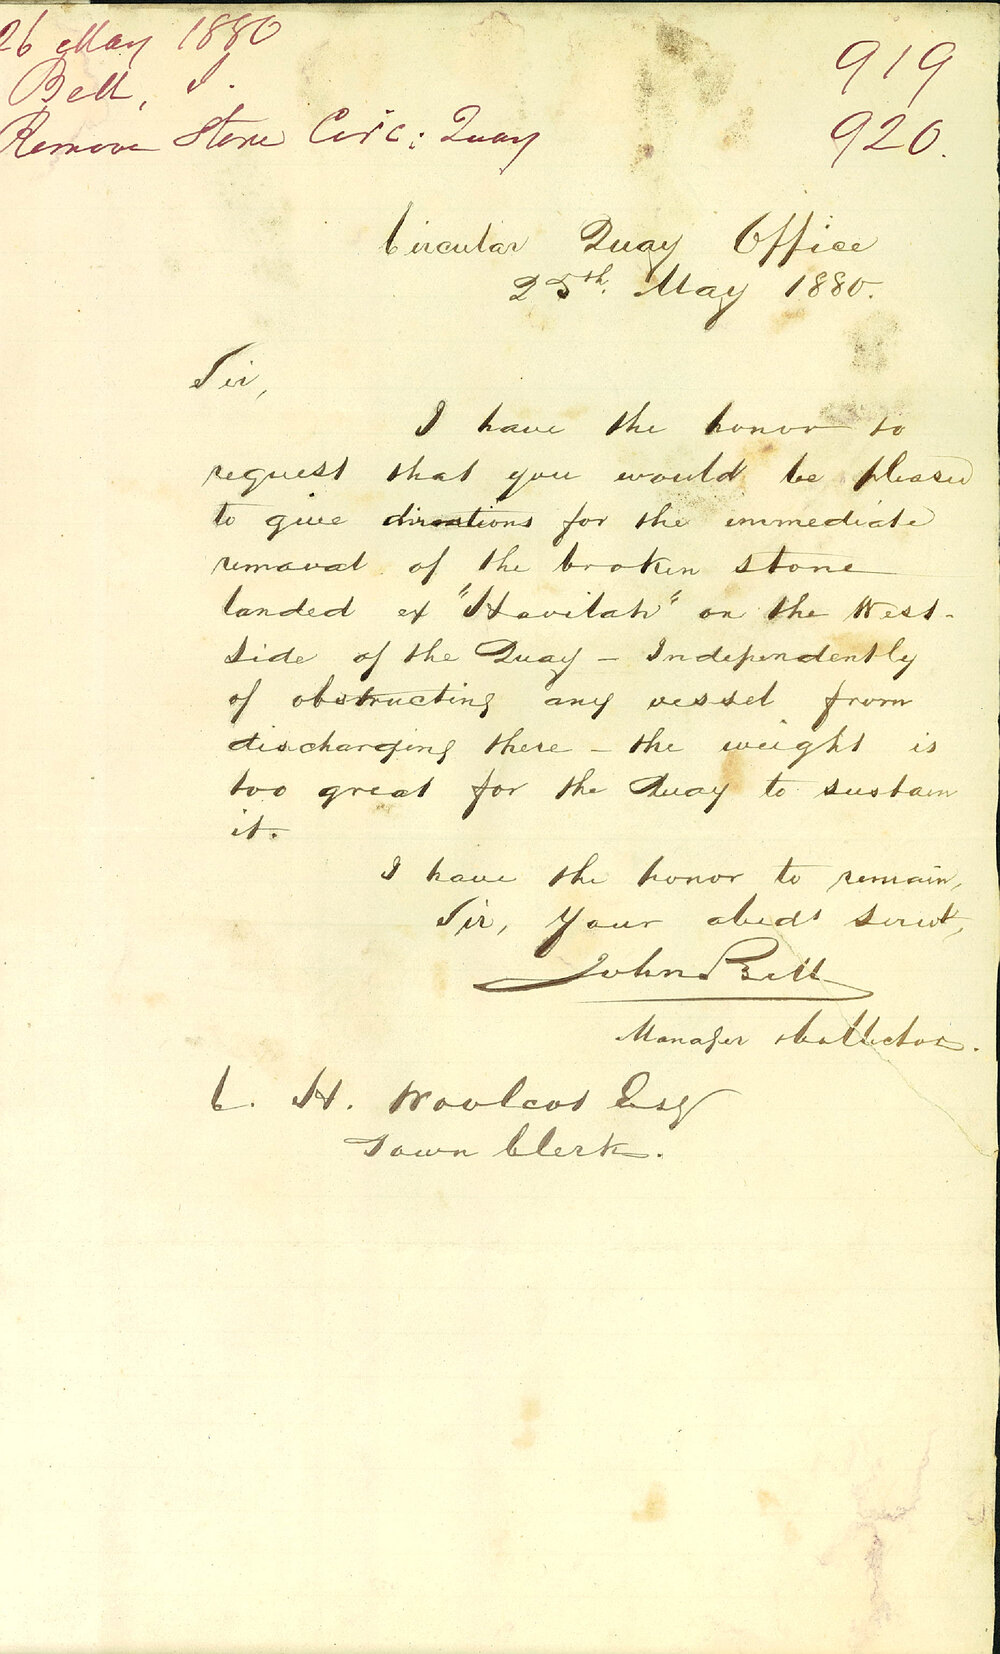 26 May 1880
919
Bell, J.
920.
Remove Stone Circ: Quay
Circular Quay Office
25th. May 1880.
Sir,
I have the honor to
request that you would be pleased
to give directions for the immediate
removal of the broken stone
landed ex "Havilah" on the West-
side of the Quay – Independently
of obstructing any vessel from
discharging there – the weight is
too great for the Quay to sustain
it.
I have the honor to remain,
Sir, Your obedt servt,
John Bell
Manager & Collector.
C. H. Woolcot Esq
Town Clerk.